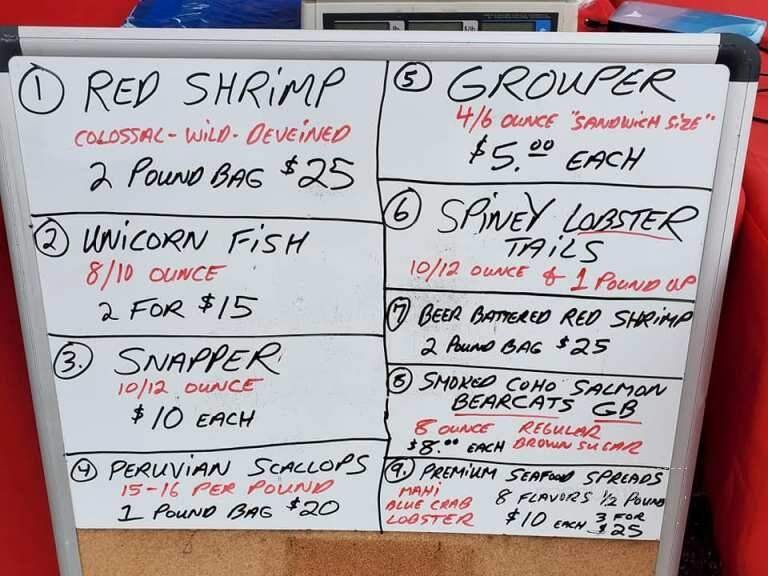 1 RED SHRIMP
COLOSSAL - WILD - DEVEINED
2 POUND BAG $25
2 UNICORN FISH
8/10 OUNCE
2 FOR $15
3. SNAPPER
10/12 OUNCE
$10 EACH
4 PERUVIAN SCALLOPS
15-16 PER POUND
1 POUND BAG $20
5 GROUPER
4/6 OUNCE "SANDWICH SIZE"
$5.00 EACH
6 SPINEY LOBSTER
TAILS
10/12 OUNCE & 1 POUND UP
7 BEER BATTERED RED SHRIMP
2 POUND BAG $25
8 SMOKED COHO SALMON
BEARCATS GB
8 OUNCE REGULAR
$8.00 EACH BROWN SUGAR
9. PREMIUM SEAFOOD SPREADS
MAHI 8 FLAVORS 1/2 POUND
BLUE CRAB
LOBSTER $10 EACH 3 FOR
$25